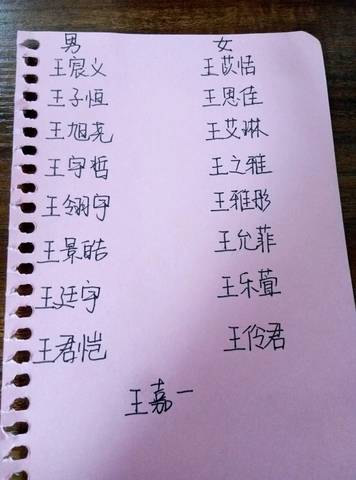 男 女
王宸义 王苡恬
王子恒 王思佳
王旭尧 王艾琳
王宇哲 王之雅
王翎宇 王雅彤
王景皓 王允菲
王廷宇 王乐萱
王君恺 王伶君
王嘉一